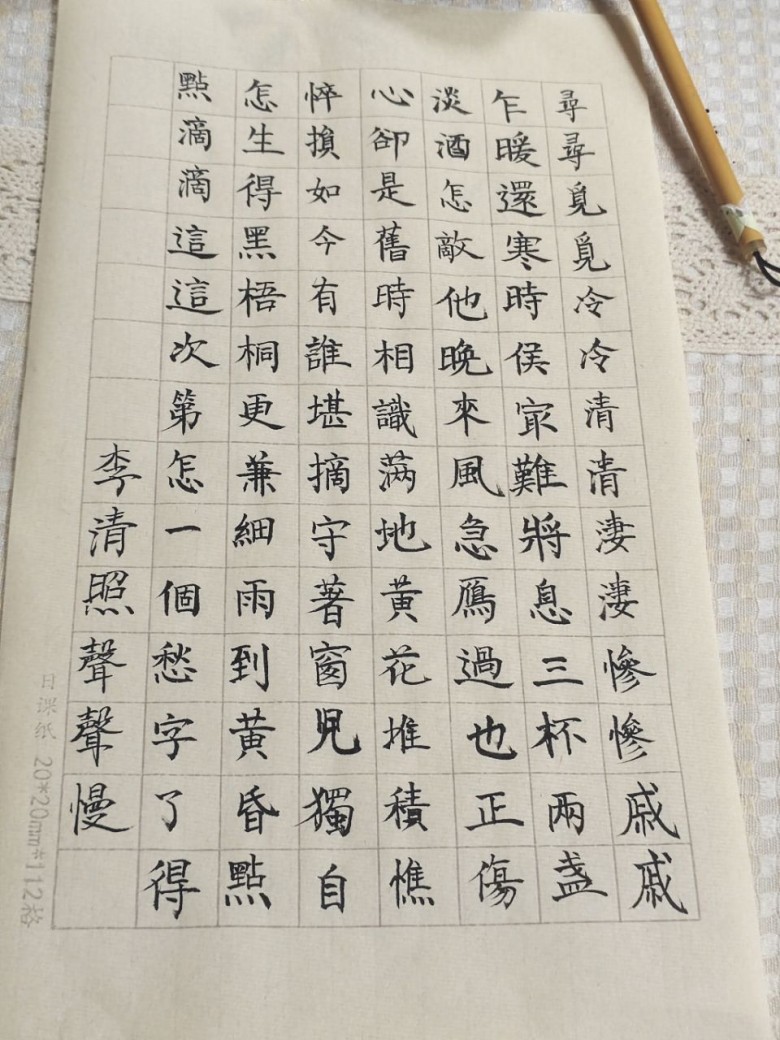 尋尋覓覓冷冷清清淒淒慘慘戚戚
乍暖還寒時侯寂難將息三杯兩盞
淡酒怎敵他晚來風急鴈過也正傷
心卻是舊時相識滿地黃花堆積憔
悴損如今有誰堪摘守著窗兒獨自
怎生得黑梧桐更兼細雨到黃昏點
點滴滴這這次第怎一個愁字了得
李清照聲聲慢
日课纸 20*20mm*112格